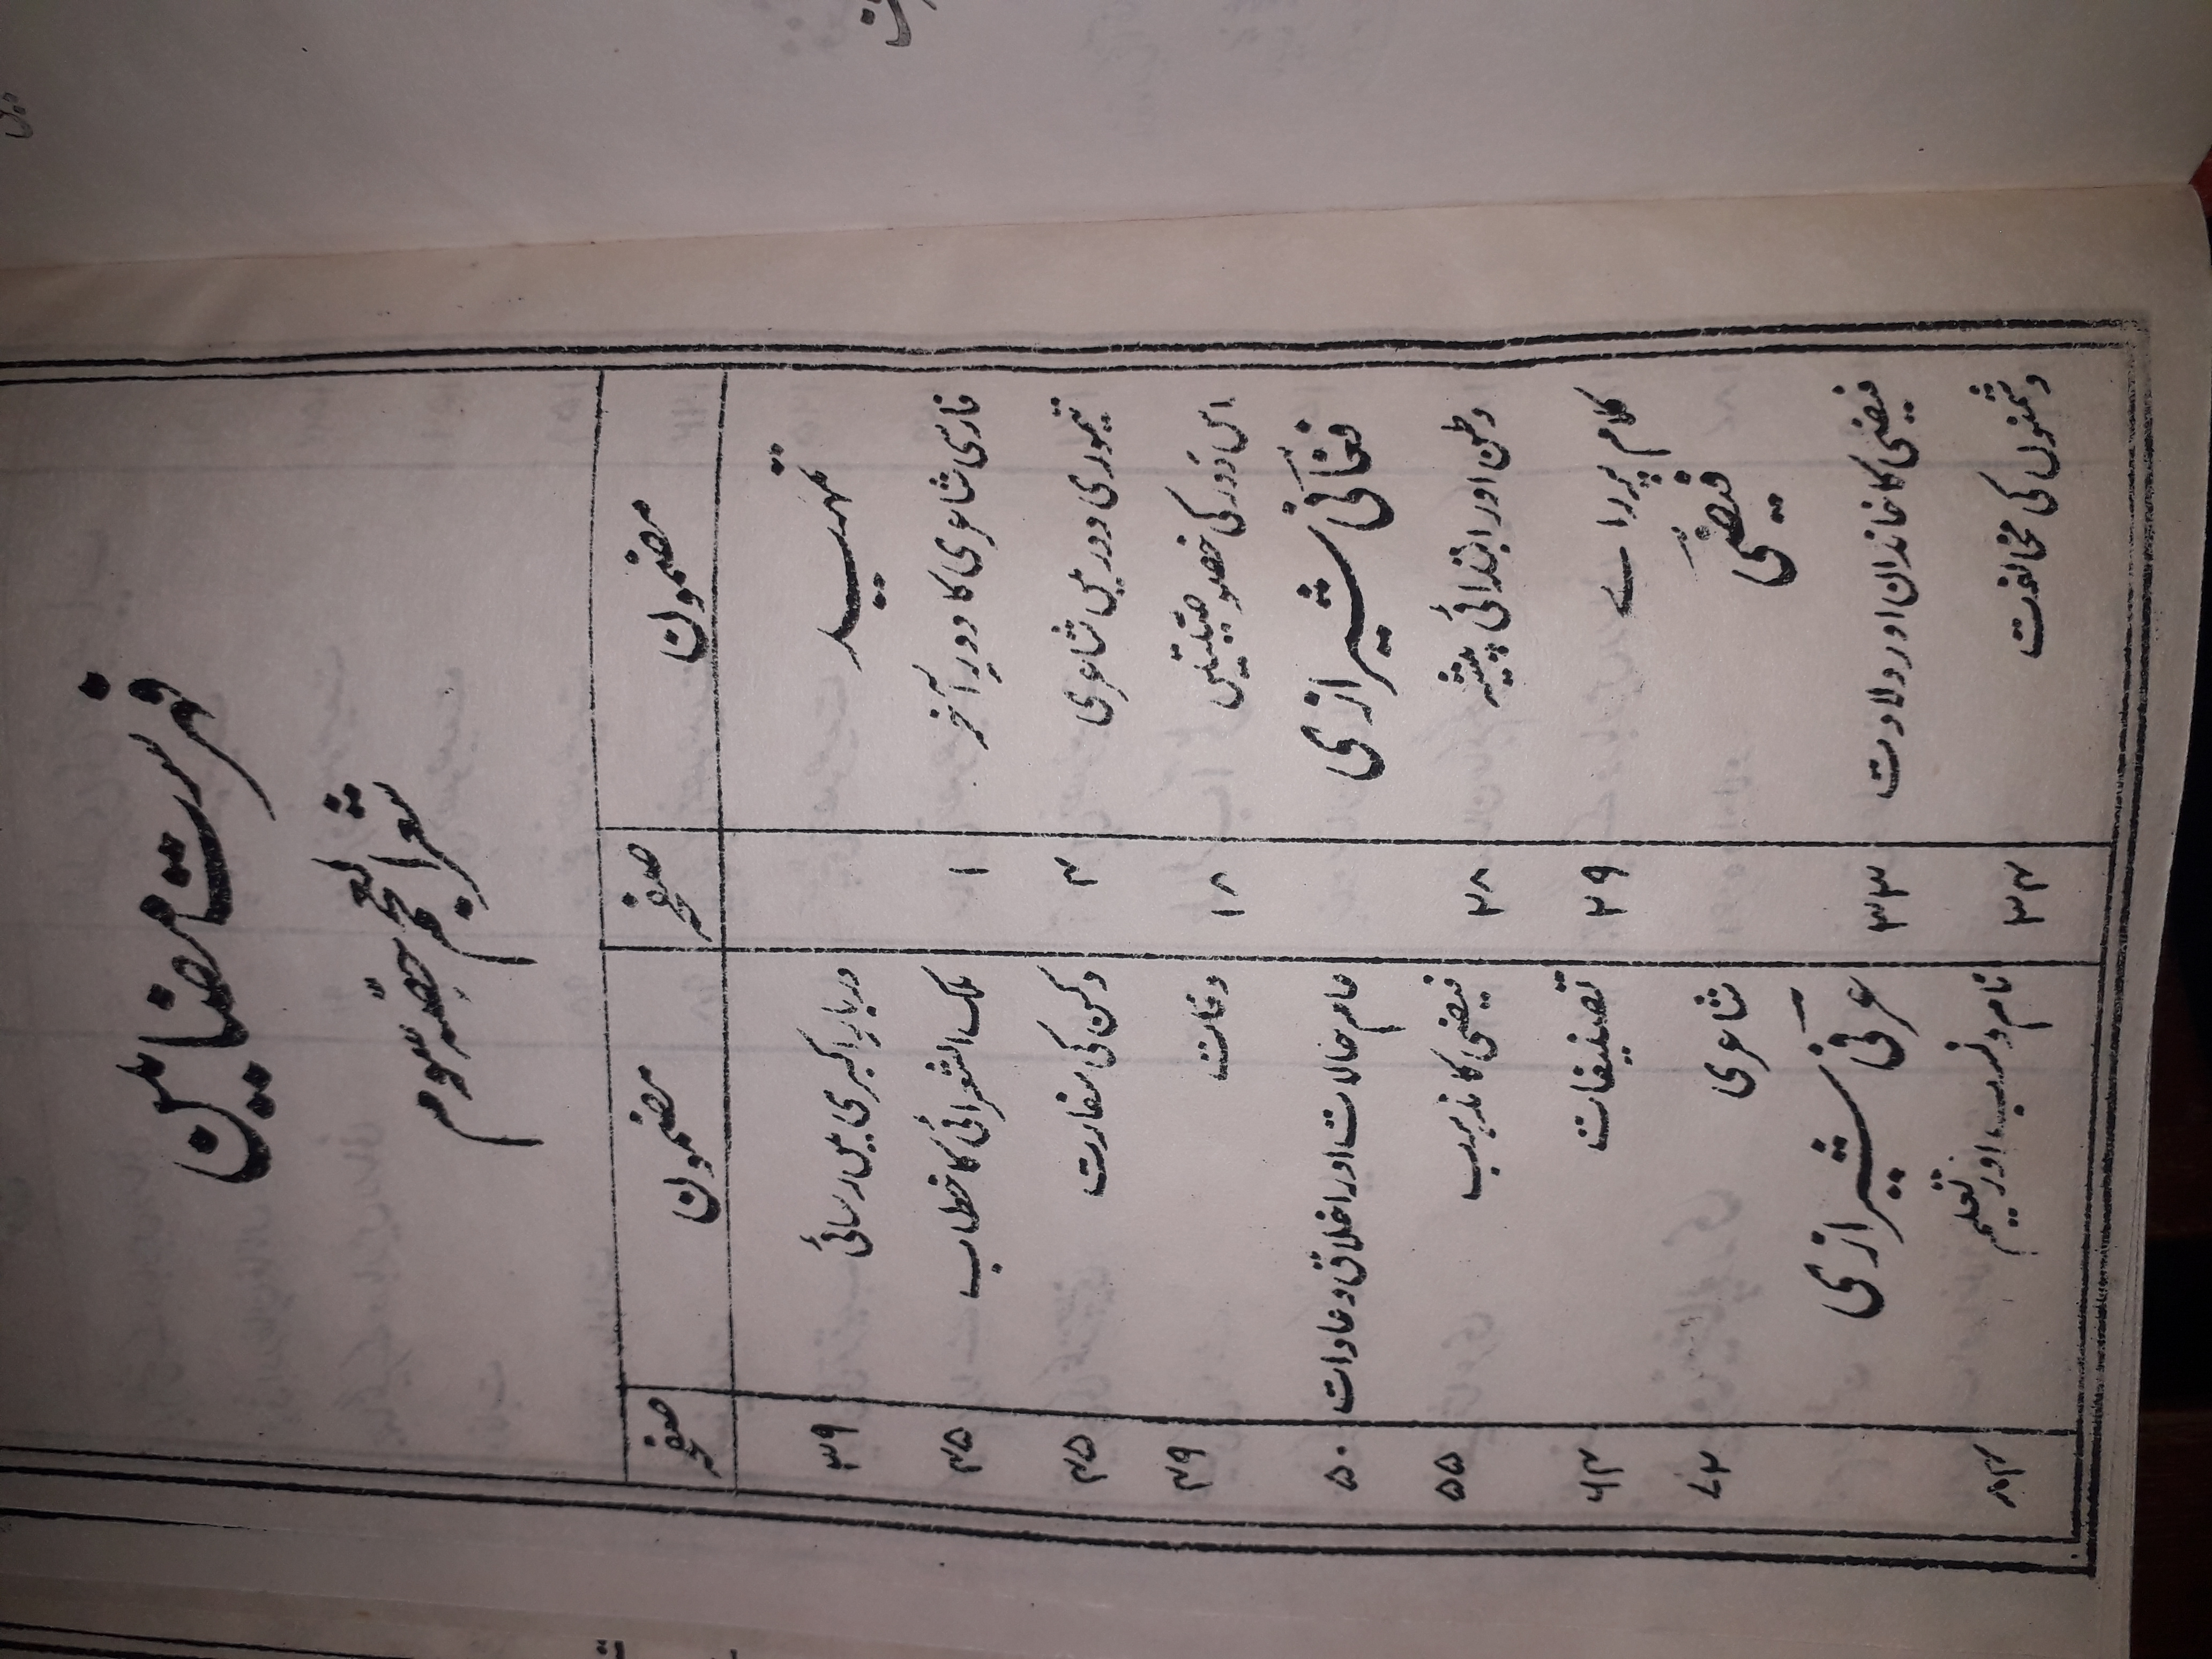 فہرست مضامین
شعر العجم حصّہ سوم
مضمون صفحہ مضمون صفحہ
تمہید
دربارِ اکبری میں رسائی ۳۹
فارسی شاعری کا دورِ آخر ۱
ملک الشعرائی کا خطاب ۴۵
تیموری دور میں شاعری ۴
دکن کی سفارت ۴۵
اس دَور کی خصوصیتیں ۱۸
وفات ۴۹
فغانی شیرازی
عام حالات اور اخلاق و عادات ۵۰
وطن اور ابتدائی پیشہ ۲۸
فیضی کا مذہب ۵۵
کلام پر راے ۲۹
تصنیفات ۶۴
فیضی
شاعری ۷۲
فیضی کا خاندان اور ولادت ۳۳
عرفی شیرازی
دشمنوں کی مخالفت ۳۴
نام و نسب، اور تعلیم